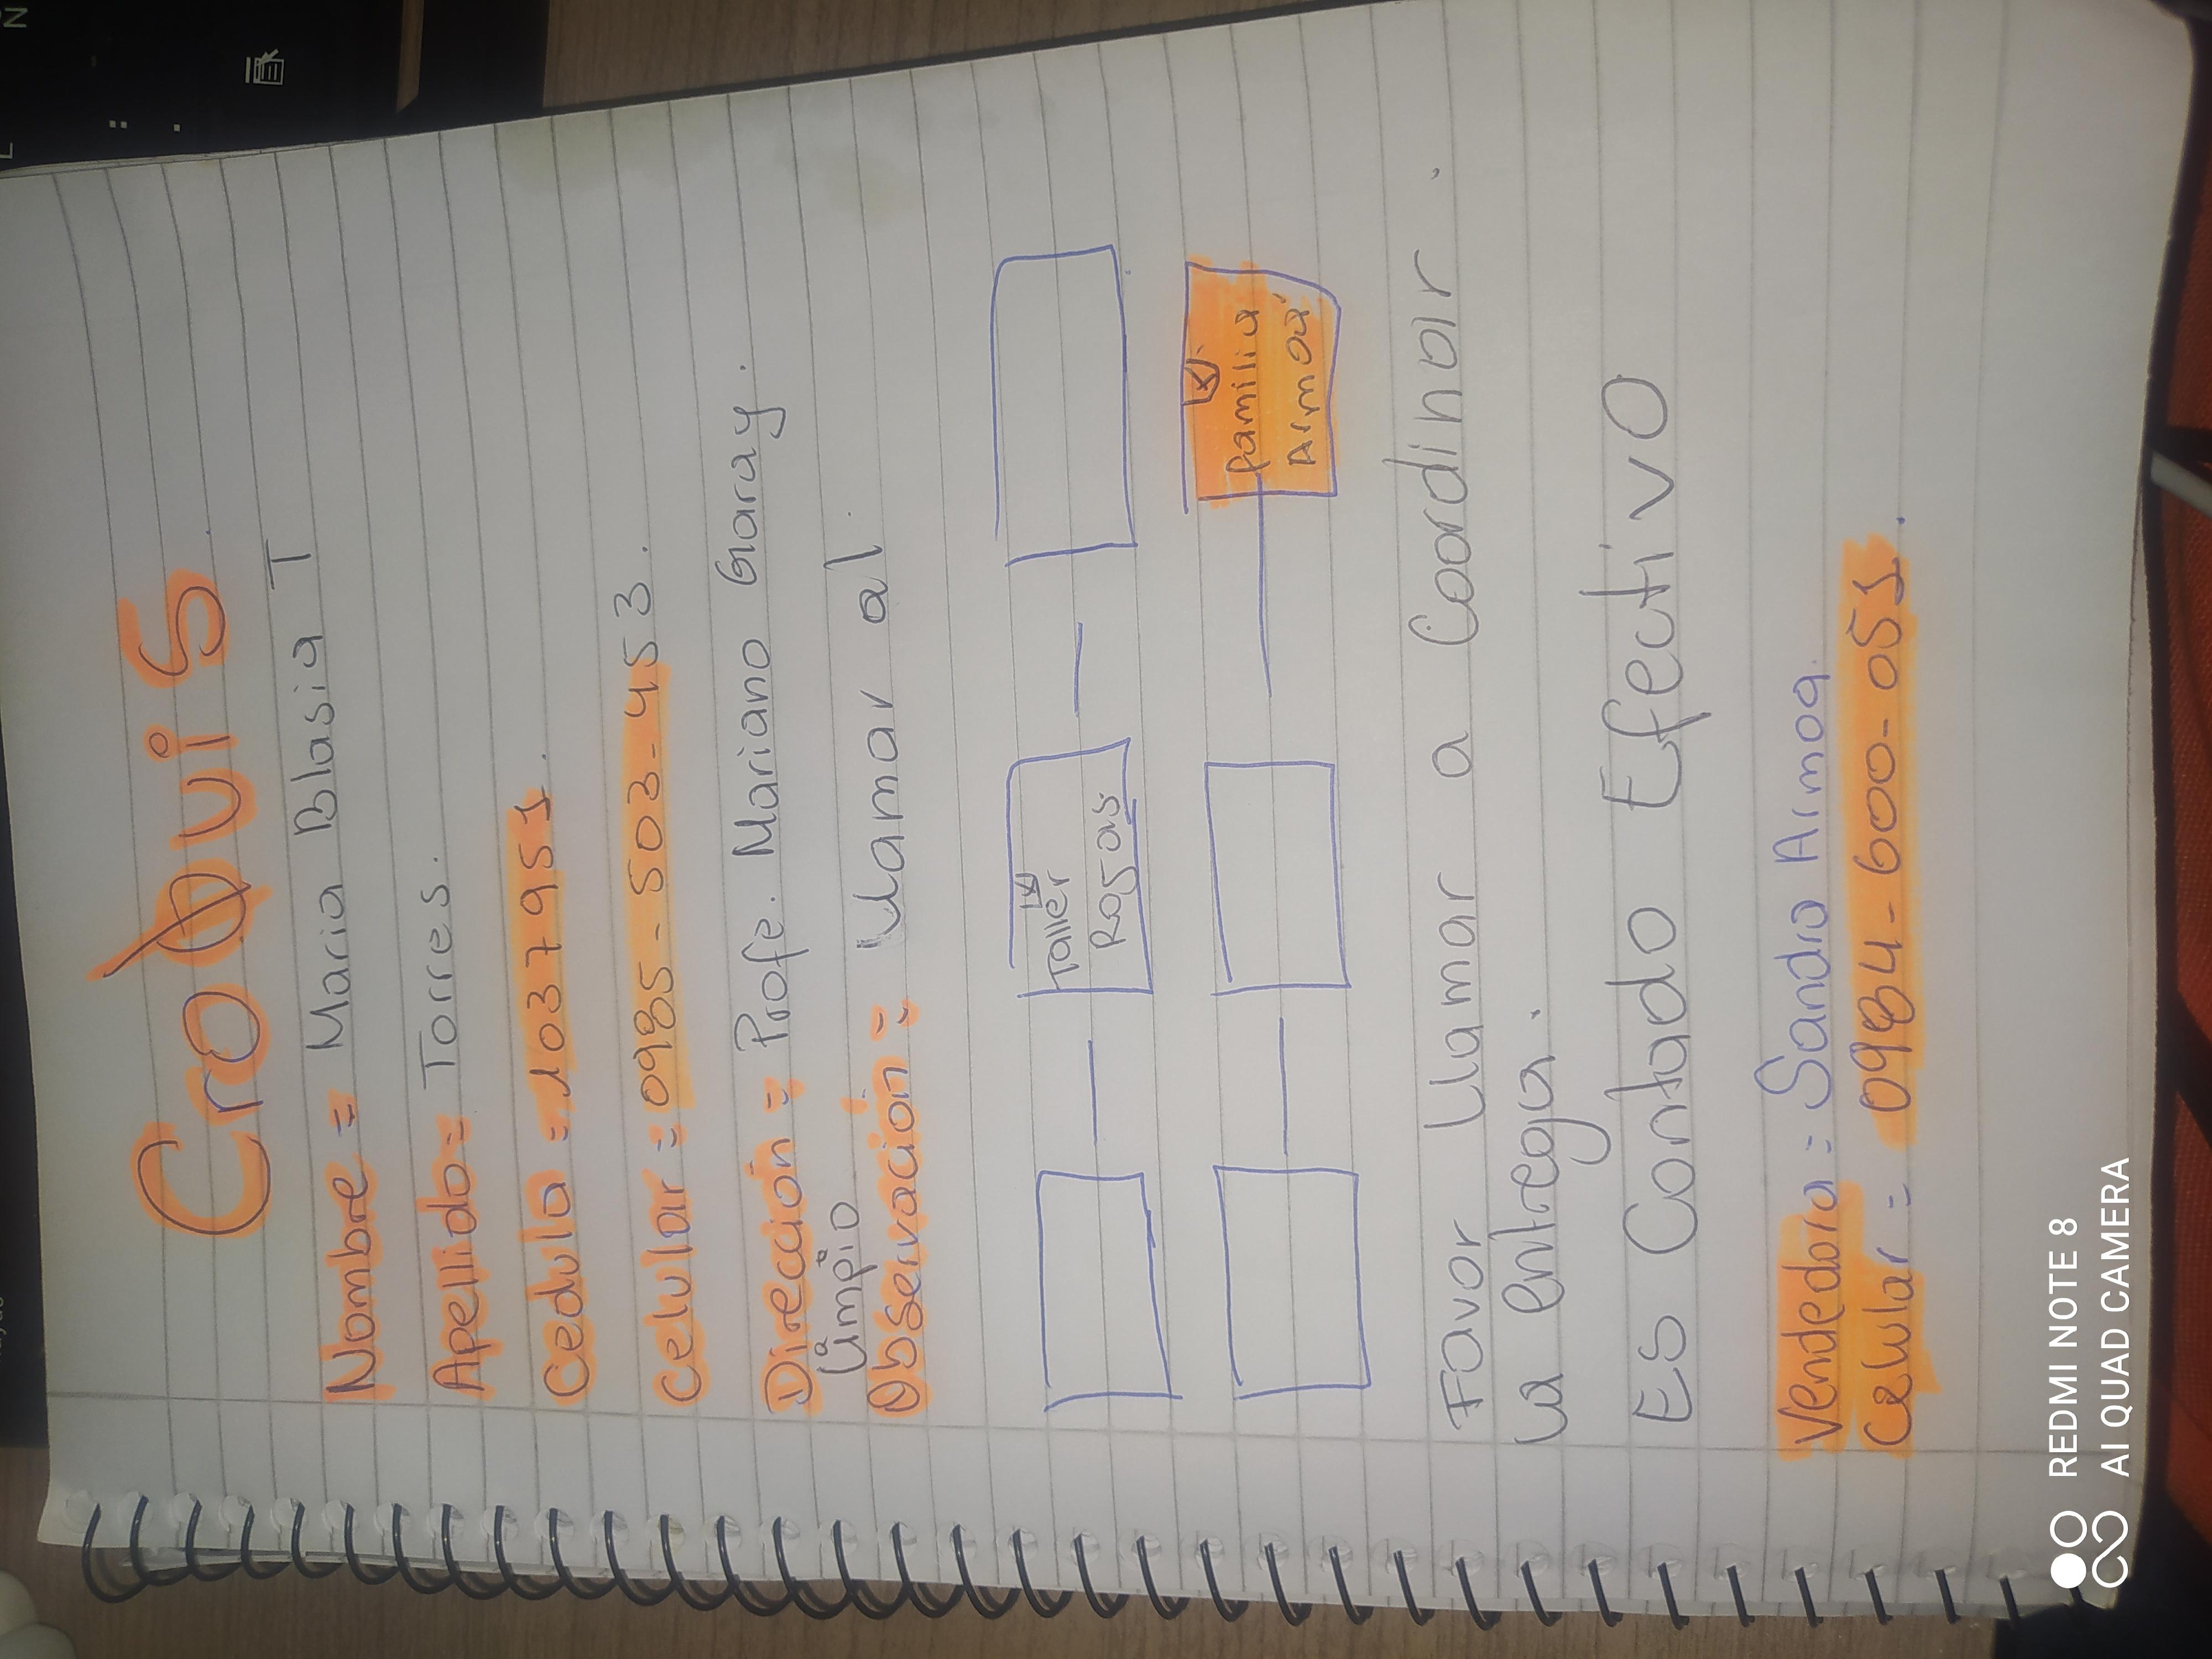 Croquis
Nombre = Maria Blasia T
Apellido = Torres.
Cedula = 1037951.
Celular = 0985-503-453.
Dirección = Profe. Mariano Garay.
Limpio
Observación = Llamar al.
Taller
Rojas.
familia
Armoa
Favor llamar a Coordinar.
la entrega.
Es Contado Efectivo
Vendedora = Sandra Armoa.
Celular = 0984-600-051.
REDMI NOTE 8
AI QUAD CAMERA